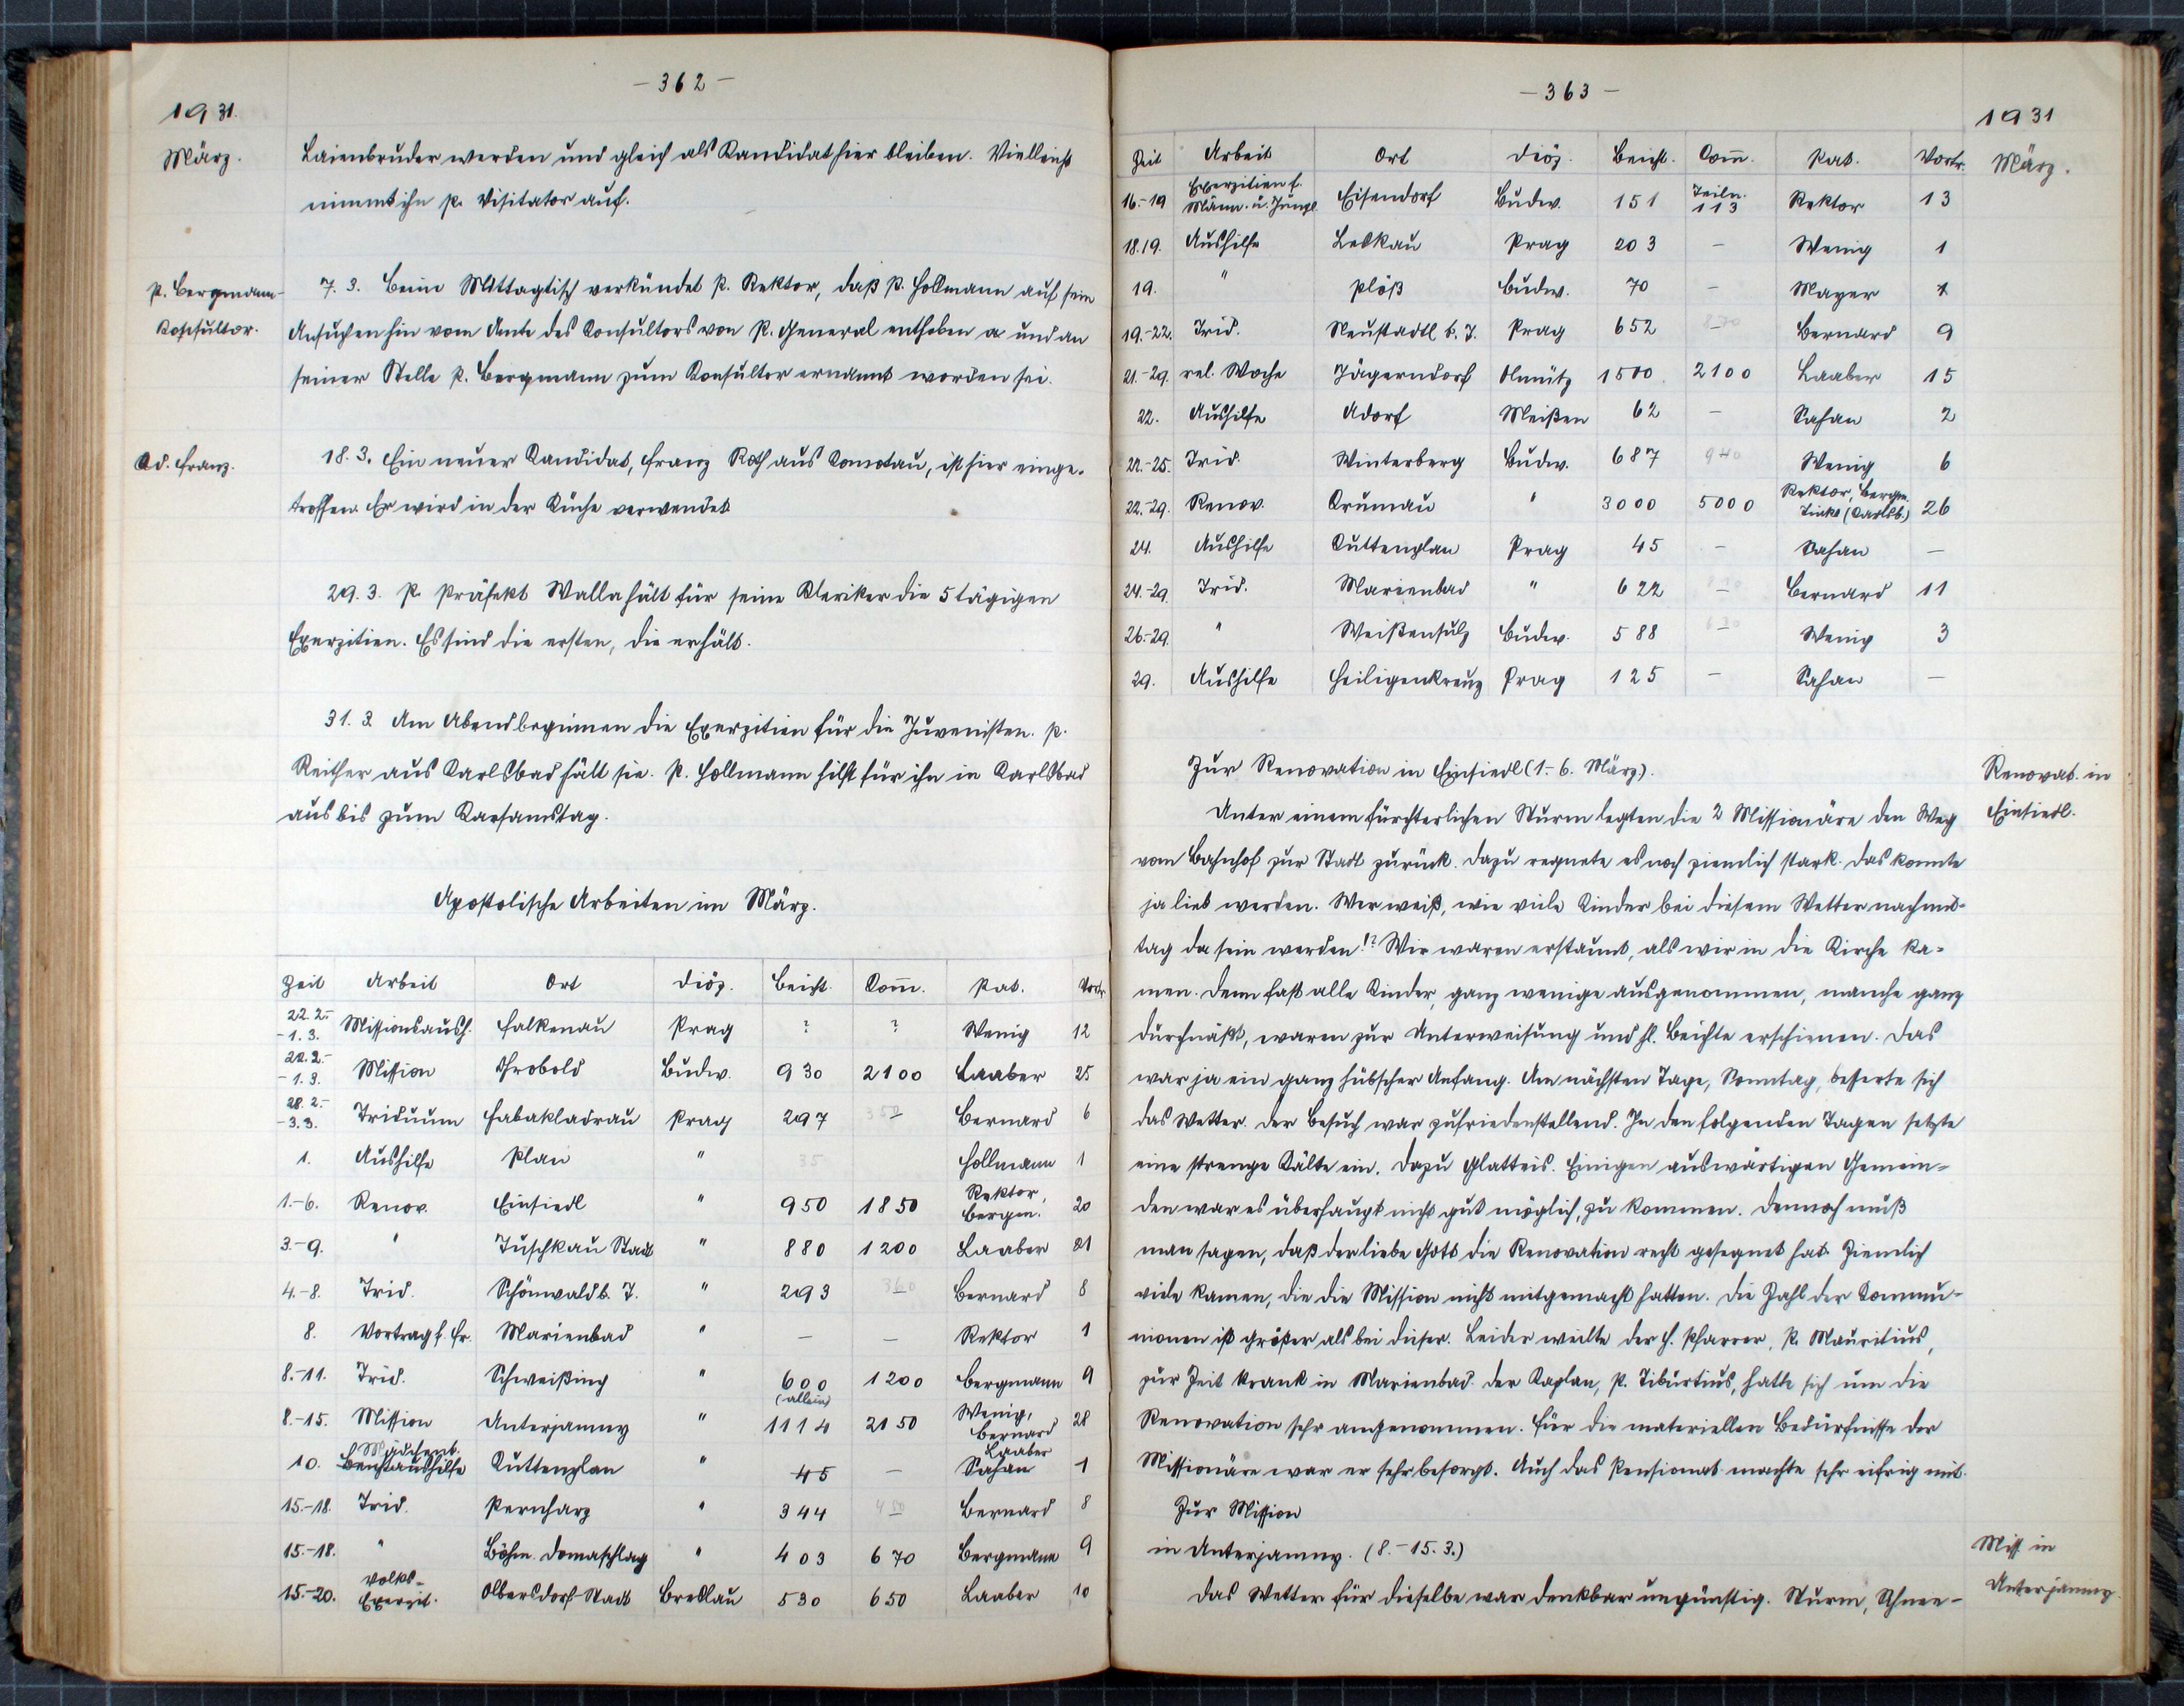 - 362 -
1931.
März.
Laienbruder werden und gleich als Kandidat hier bleiben. Vielleicht
nimmt ihn P. Visitator auf.
P. Bergmann-
Konsultor.
7. 3. Beim Mittagtisch verkündet P. Rektor, daß P. Hollmann auf sein
Ansuchen hin vom Amte des Consultors von P. General enthoben und an
seiner Stelle P. Bergmann zum Konsultor ernannt worden sei.
Kd. Franz.
18. 3. Ein neuer Kandidat, Franz Roth aus Komotau, ist hier einge-
troffen. Er wird in der Küche verwendet.
29. 3. P. Präfekt Walla hält für seine Kleriker die 5 tägigen
Exerzitien. Es sind die ersten, die er hält.
31. 3. Am Abend beginnen die Exerzitien für die Juvenisten. P.
Reither aus Karlsbad hält sie. P. Hollmann hilft für ihn in Karlsbad
aus bis zum Karsamstag.
Apostolische Arbeiten im März.
Zeit Arbeit Ort Diöz. Beicht. Com̄. Pat. Vortr.
22. 2.- - 1. 3. Missionsaush. Falkenau Prag ? ? Wenig 12
22. 2.- - 1. 3. Mission Chrobold Budw. 930 2100 Laaber 25
28. 2.- - 3. 3. Triduum Habakladrau Prag 297 350 Bernard 6
1. Aushilfe Plan " 35 Hollmann 1
1.-6. Renov. Einsiedl " 950 1850 Rektor, Bergm. 20
3.-9. " Tuschkau Stadt " 880 1200 Laaber 21
4.-8. Trid. Schönwald b. T. " 293 360 Bernard 8
8. Vortrag f. Fr. Marienbad " — — Rektor 1
8.-11. Trid. Schweißing " 600 (allein) 1200 Bergmann 9
8.-15. Mission Unterjamny " 1114 2150 Wenig, Bernard 28
10. Mädchent. Beichtaushilfe Kuttenplan " 45 — Laaber Sahan 1
15.-18. Trid. Pernharz " 344 450 Bernard 8
15.-18. " Böhm. Domaschlag " 403 670 Bergmann 9
15.-20. Volks-Exerzit. Olbersdorf-Stadt Breslau 530 650 Laaber 10
- 363 -
1931
März.
Zeit Arbeit Ort Diöz. Beicht. Com̄. Pat. Vortr.
16.-19 Exerzitien f. Männ. u. Jüngl. Eisendorf Budw. 151 Teiln. 113 Rektor 13
18.19. Aushilfe Leskau Prag 203 — Wenig 1
19. " Plöß Budw. 70 — Mayer 1
19.-22. Trid. Neustadtl b. T. Prag 652 870 Bernard 9
21.-29. rel. Woche Jägerndorf Olmütz 1500 2100 Laaber 15
22. Aushilfe Adorf Meißen 62 — Sahan 2
22.-25. Trid. Winterberg Budw. 687 940 Wenig 6
22.-29. Renov. Krumau " 3000 5000 Rektor, Bergm. (Karlsb.) 26
24. Aushilfe Kuttenplan Prag 45 — Sahan —
24.-29. Trid. Marienbad " 622 — Bernard 11
26.-29. " Weißensulz Budw. 588 — Wenig 3
29. Aushilfe Heiligenkreuz Prag 125 — Sahan —
Zur Renovation in Einsiedl (1.- 6. März).
Renovat. in
Einsiedl.
Unter einem fürchterlichen Sturm legten die 2 Missionäre den Weg
vom Bahnhof zur Stadt zurück. Dazu regnete es noch ziemlich stark. Das konnte
ja lieb werden. Wer weiß, wie viele Kinder bei diesem Wetter nachmit-
tag da sein werden!? Wir waren erstaunt, als wir in die Kirche ka-
men. Denn fast alle Kinder, ganz wenige ausgenommen, manche ganz
durchnäßt, waren zur Unterweisung und hl. Beichte erschienen. Das
war ja ein ganz hübscher Anfang. Am nächsten Tage, Sonntag, besserte sich
das Wetter. Der Besuch war zufriedenstellend. In den folgenden Tagen setzte
eine strenge Kälte ein. Dazu Glatteis. Einigen auswärtigen Gemein-
den war es überhaupt nicht gut möglich, zu kommen. Dennoch muß
man sagen, daß der liebe Gott die Renovation recht gesegnet hat. Ziemlich
viele kamen, die die Mission nicht mitgemacht hatten. Die Zahl der Commu-
nionen ist größer als bei dieser. Leider weilte der H. Pfarrer, P. Mauritius,
zur Zeit krank in Marienbad. Der Kaplan, P. Tiburtius, hatte sich um die
Renovation sehr angenommen. Für die materiellen Bedürfnisse der
Missionäre war er sehr besorgt. Auch das Pensionat machte sehr eifrig mit.
Zur Mission
in Unterjamny. (8.-15. 3.)
Miss. in
Unterjamny.
Das Wetter für dieselbe war denkbar ungünstig. Sturm, Schnee-